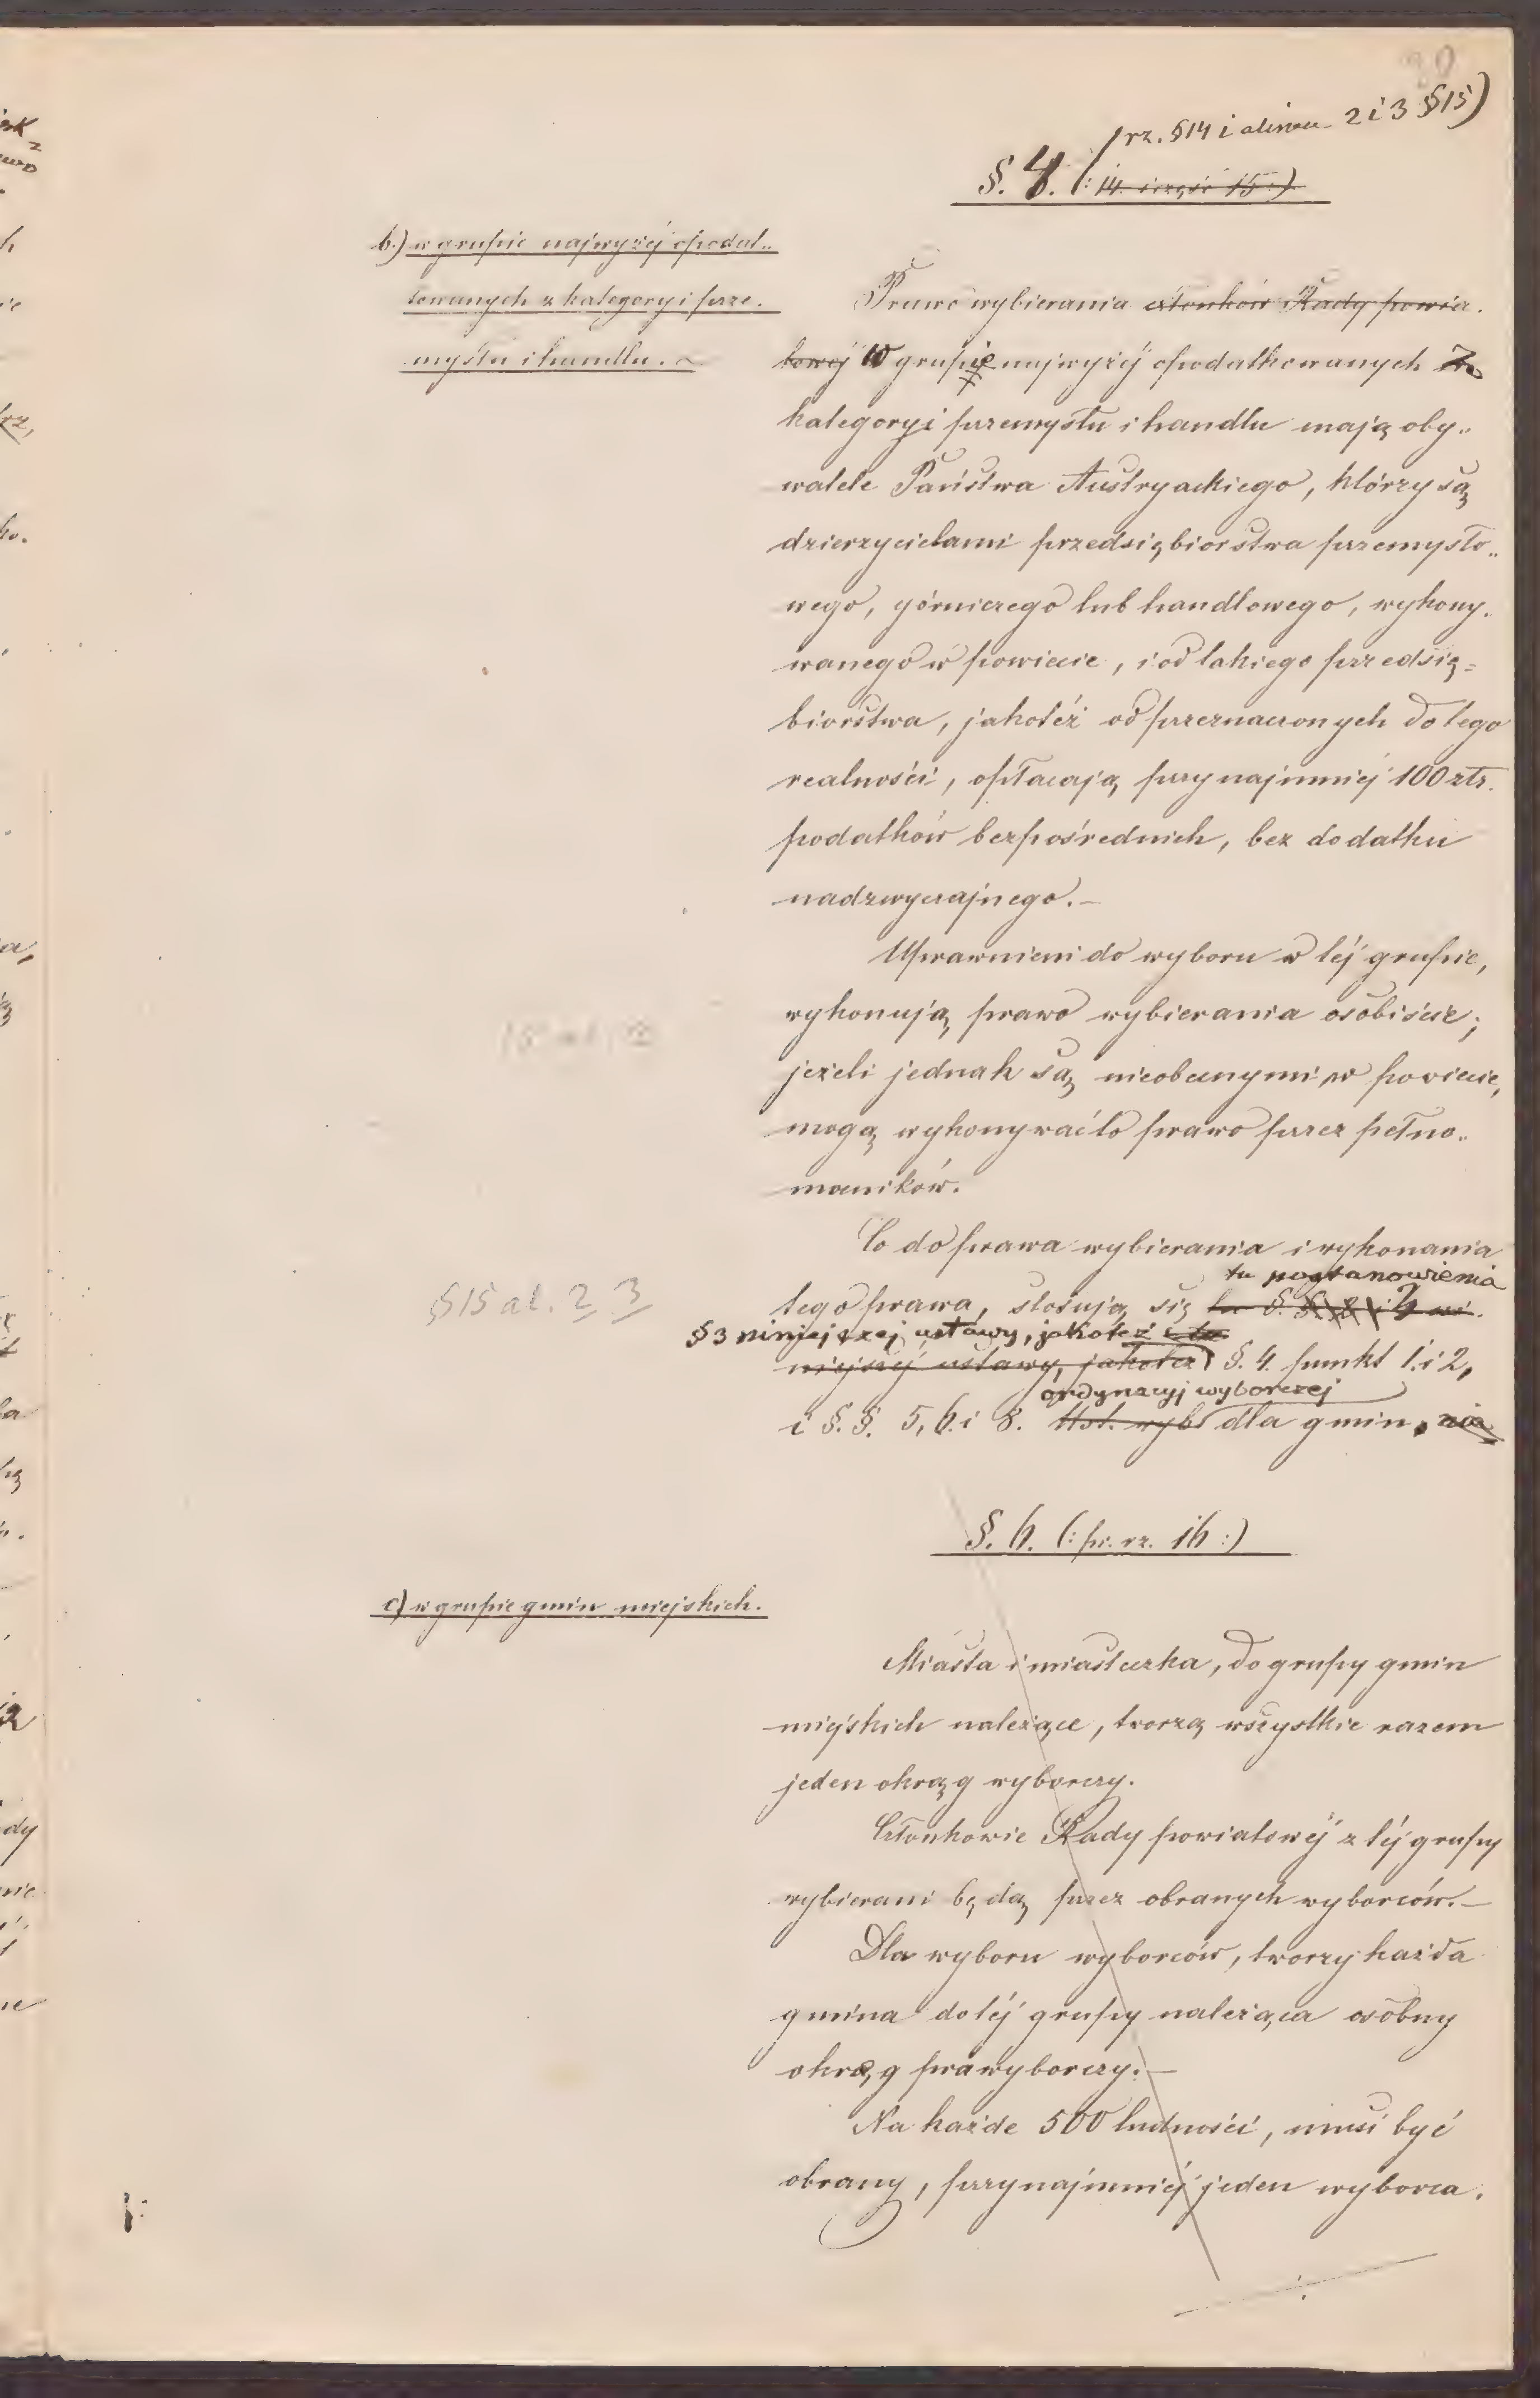 (rz. §14 i alinea 2 i 3 §15)
§. 4. (: 14. i część 15 :)
b.) w grupie najwyżéj opodat„
kowanych z kategoryi prze.
mysłu i handlu.
Prawo wybierania członków Rady powia.
towéj W grupie najwyżéj opodatkowanych z
kategoryi przemysłu i handlu mają oby„
watele Państwa Austryackiego, którzy są
dzierzycielami przedsiębiorstwa przemysło„
wego, górniczego lub handlowego, wykony„
wanego w powiecie, i od takiego przedsię=
biorstwa, jakoteż od przeznaczonych do tego
realności, opłacają przynajmniéj 100 złr.
podatków bezpośrednich, bez dodatku
nadzwyczajnego.—
Uprawnieni do wyboru w téj grupie,
wykonują prawo wybierania osobiście;
jeżeli jednak są nieobecnymi w powiecie,
mogą wykonywać to prawo przez pełno„
mocników.
Co do prawa wybierania i wykonania
tu postanowienia
§15 al. 2, 3
tego prawa, stosują się tu §. 3 ni.
§3 niniejszej ustawy, jakoteż i tu
niejszéj ustawy, jakoteż §. 4. punkt 1. i 2,
ordynacyj wyborczej
i §. §. 5, 6. i 8. Ust. wyb. dla gmin.
§. 6. (: pr. rz. 16 :)
c) w grupie gmin miejskich.
Miasta i miasteczka, do grupy gmin
miejskich należące, tworzą wszystkie razem
jeden okrąg wyborczy.
Członkowie Rady powiatowéj z téj grupy
wybierani będą przez obranych wyborców.—
Dla wyboru wyborców, tworzy każda
gmina do téj grupy należąca osobny
okrąg prawyborczy.—
Na każde 500 ludności, musi być
obrany, przynajmniéj jeden wyborca.